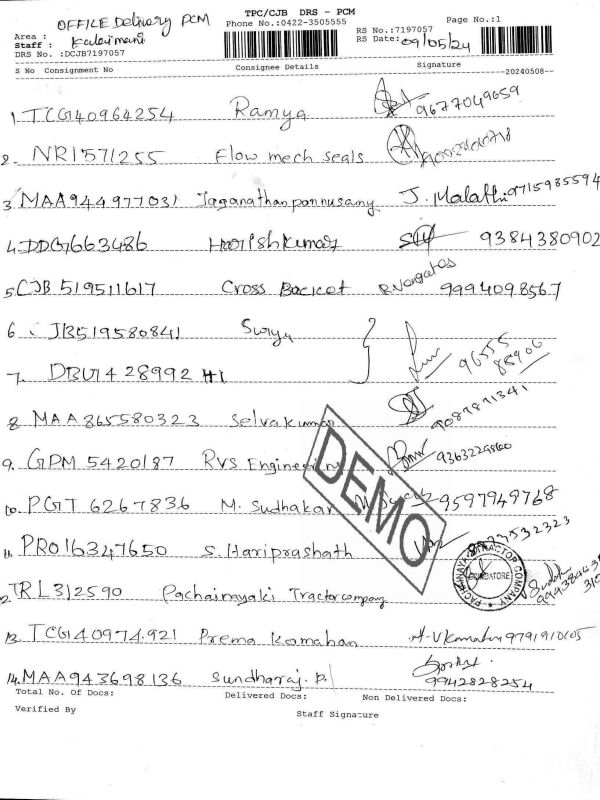 TPC/CJB DRS - PCM
OFFICE Delivery PCM
Phone No.:0422-3505555
Page No.:1
Area :
RS No.:7197057
Staff : Kalaimani
RS Date: 09/05/24
DRS No. :DCJB7197057
S No Consignment No Consignee Details Signature
--20240508--
1. TCG40964254 Ramya 9677049659
2. NR1571255 Flow mech seals
3. MAA944977031 Jaganathan ponnusamy J. Malathi 9715985594
4. DDG663486 Harish kumar 9384380902
5. CJB 519511617 Cross Bocket 9994098567
6. CJB519580841 Surya 96555 85906
7. DBU1428992 H1
8. MAA865580323 Selvakumar 9087871341
9. GPM 5420187 RVS Engineering 9363229860
10. PGT 6267836 M. Sudhakar 9597949768
11. PRO16347650 S. Hariprashath
12. TRL312590 Pachainayaki Tractor company
PACHAINAYAKI TRACTOR COMPANY
COIMBATORE
13. TCG40974921 Prema Kamahan
14. MAA943698136 Sundharaj. P. 9942828254
DEMO
Total No. of Docs: Delivered Docs: Non Delivered Docs:
Verified By Staff Signature